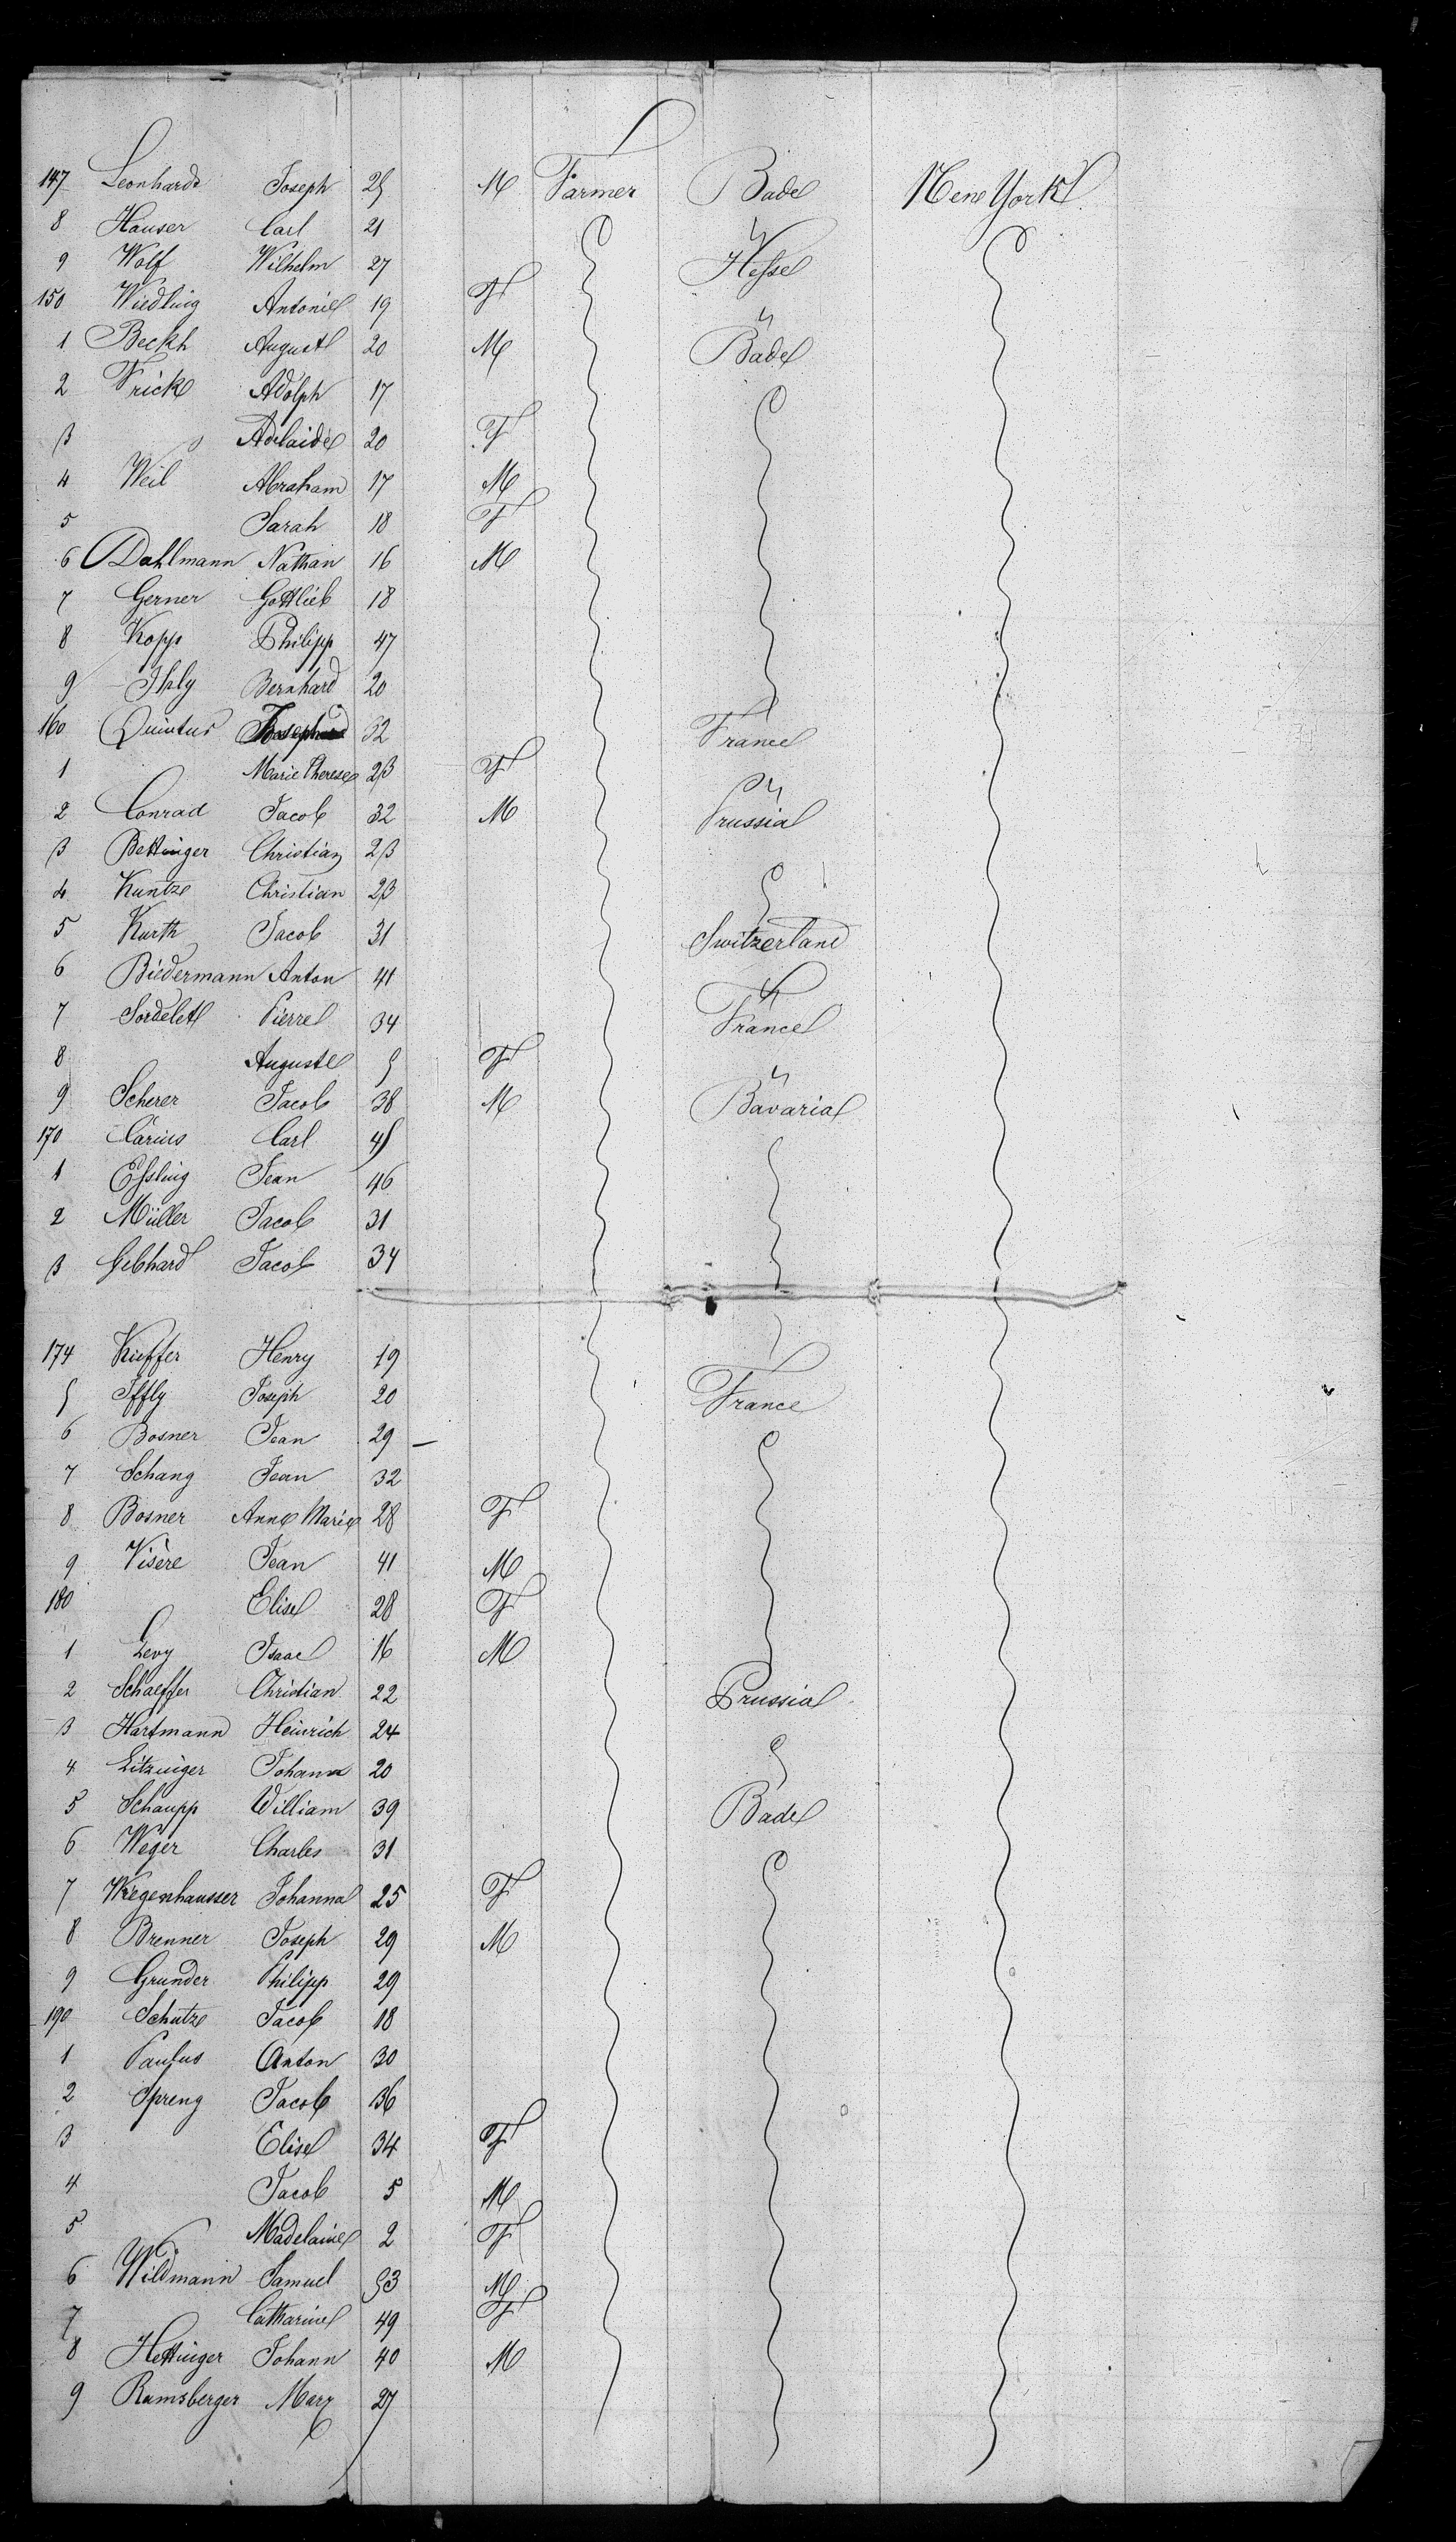 147 Leonhard Joseph 25 M Farmer Bade New York
8 Hauser Carl 21 "
9 Wolf Wilhelm 27 Hesse
150 Wiedling Antonie 19 F "
1 Beckh August 20 M Bade
2 Frick Adolph 17
3 Adelaide 20 F
4 Weil Abraham 17 M
5 Sarah 18 F
6 Dahlmann Nathan 16 M
7 Gerner Gottlieb 18
8 Kopp Philipp 47
9 Bernhard 20
160 Quintus Joseph 32 France
1 Marie Therese 23 F "
2 Conrad Jacob 32 M Prussia
3 Bettinger Christian 23
4 Kuntze Christian 23
5 Kurth Jacob 31 Switzerland
6 Biedermann Anton 41 "
7 Sordelet Pierre 34 France
8 Auguste 5 F "
9 Scherer Jacob 38 M Bavaria
170 Carius Carl 45
1 Essling Jean 46
2 Müller Jacob 31
3 Gebhard Jacob 34
174 Kieffer Henry 19
5 Iffly Joseph 20 France
6 Bosner Jean 29 –
7 Schang Jean 32
8 Bosner Anne Marie 28 F
9 Visère Jean 41 M
180 Elise 28 F
1 Levy Isaac 16 M
2 Schaeffer Christian 22 Prussia
3 Hartmann Heinrich 24
4 Litzinger Johann 20
5 Schaupp William 39 Bade
6 Weger Charles 31
7 Wregenhausser Johanna 25 F
8 Brenner Joseph 29 M
9 Grunder Philipp 29
190 Schutze Jacob 18
1 Paulus Anton 30
2 Spreng Jacob 36
3 Elise 34 F
4 Jacob 5 M
5 Madelaine 2 F
6 Wildmann Samuel 53 M
7 Catharine 49 F
8 Hettinger Johann 40 M
9 Ramsberger Marx 27